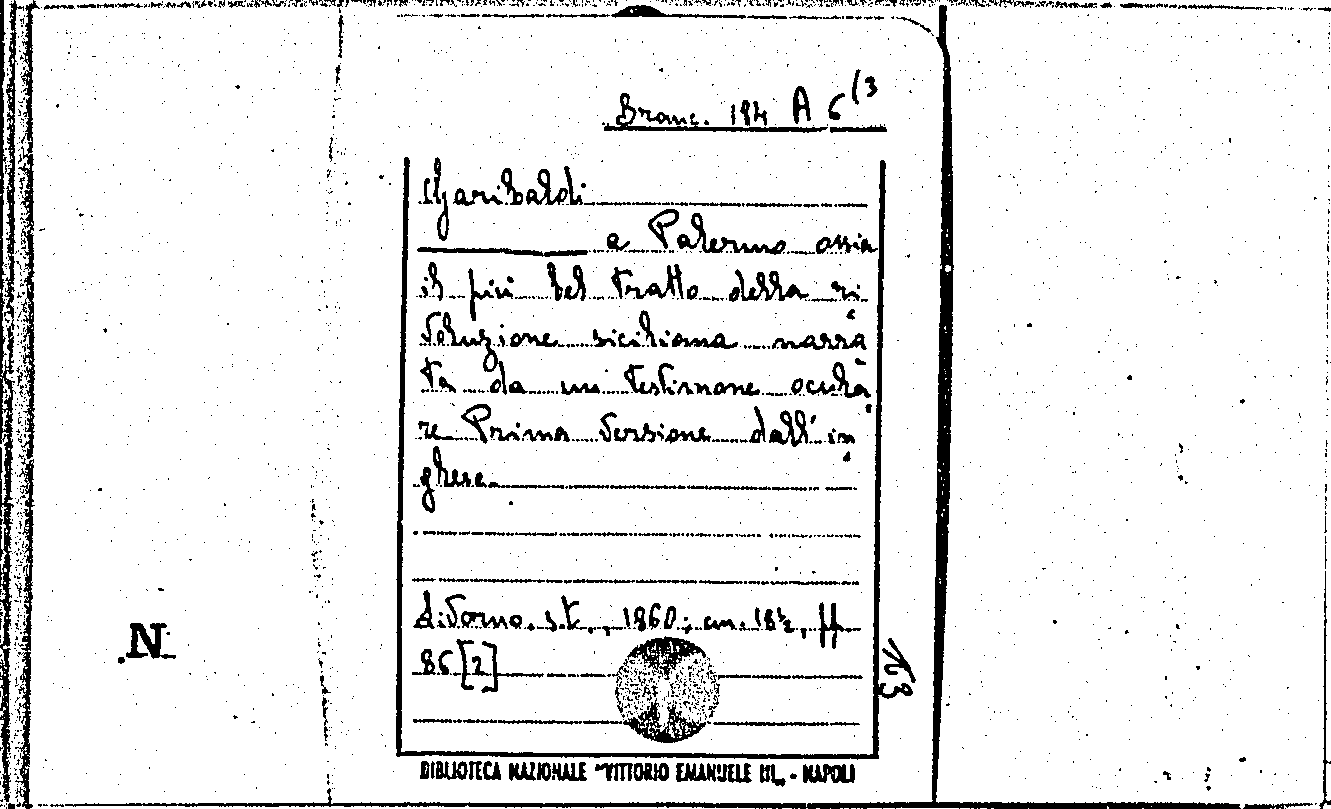 Branc. 184 A 6(3
Garibaldi
a Palermo ossia
il più bel tratto della ri
voluzione siciliana narra
ta da un testimone ocula
re Prima versione dall' in
glese.
Livorno. s.t., 1860; cm. 18½, pp.
86[2]
163
N
BIBLIOTECA NAZIONALE "VITTORIO EMANUELE III„ - NAPOLI